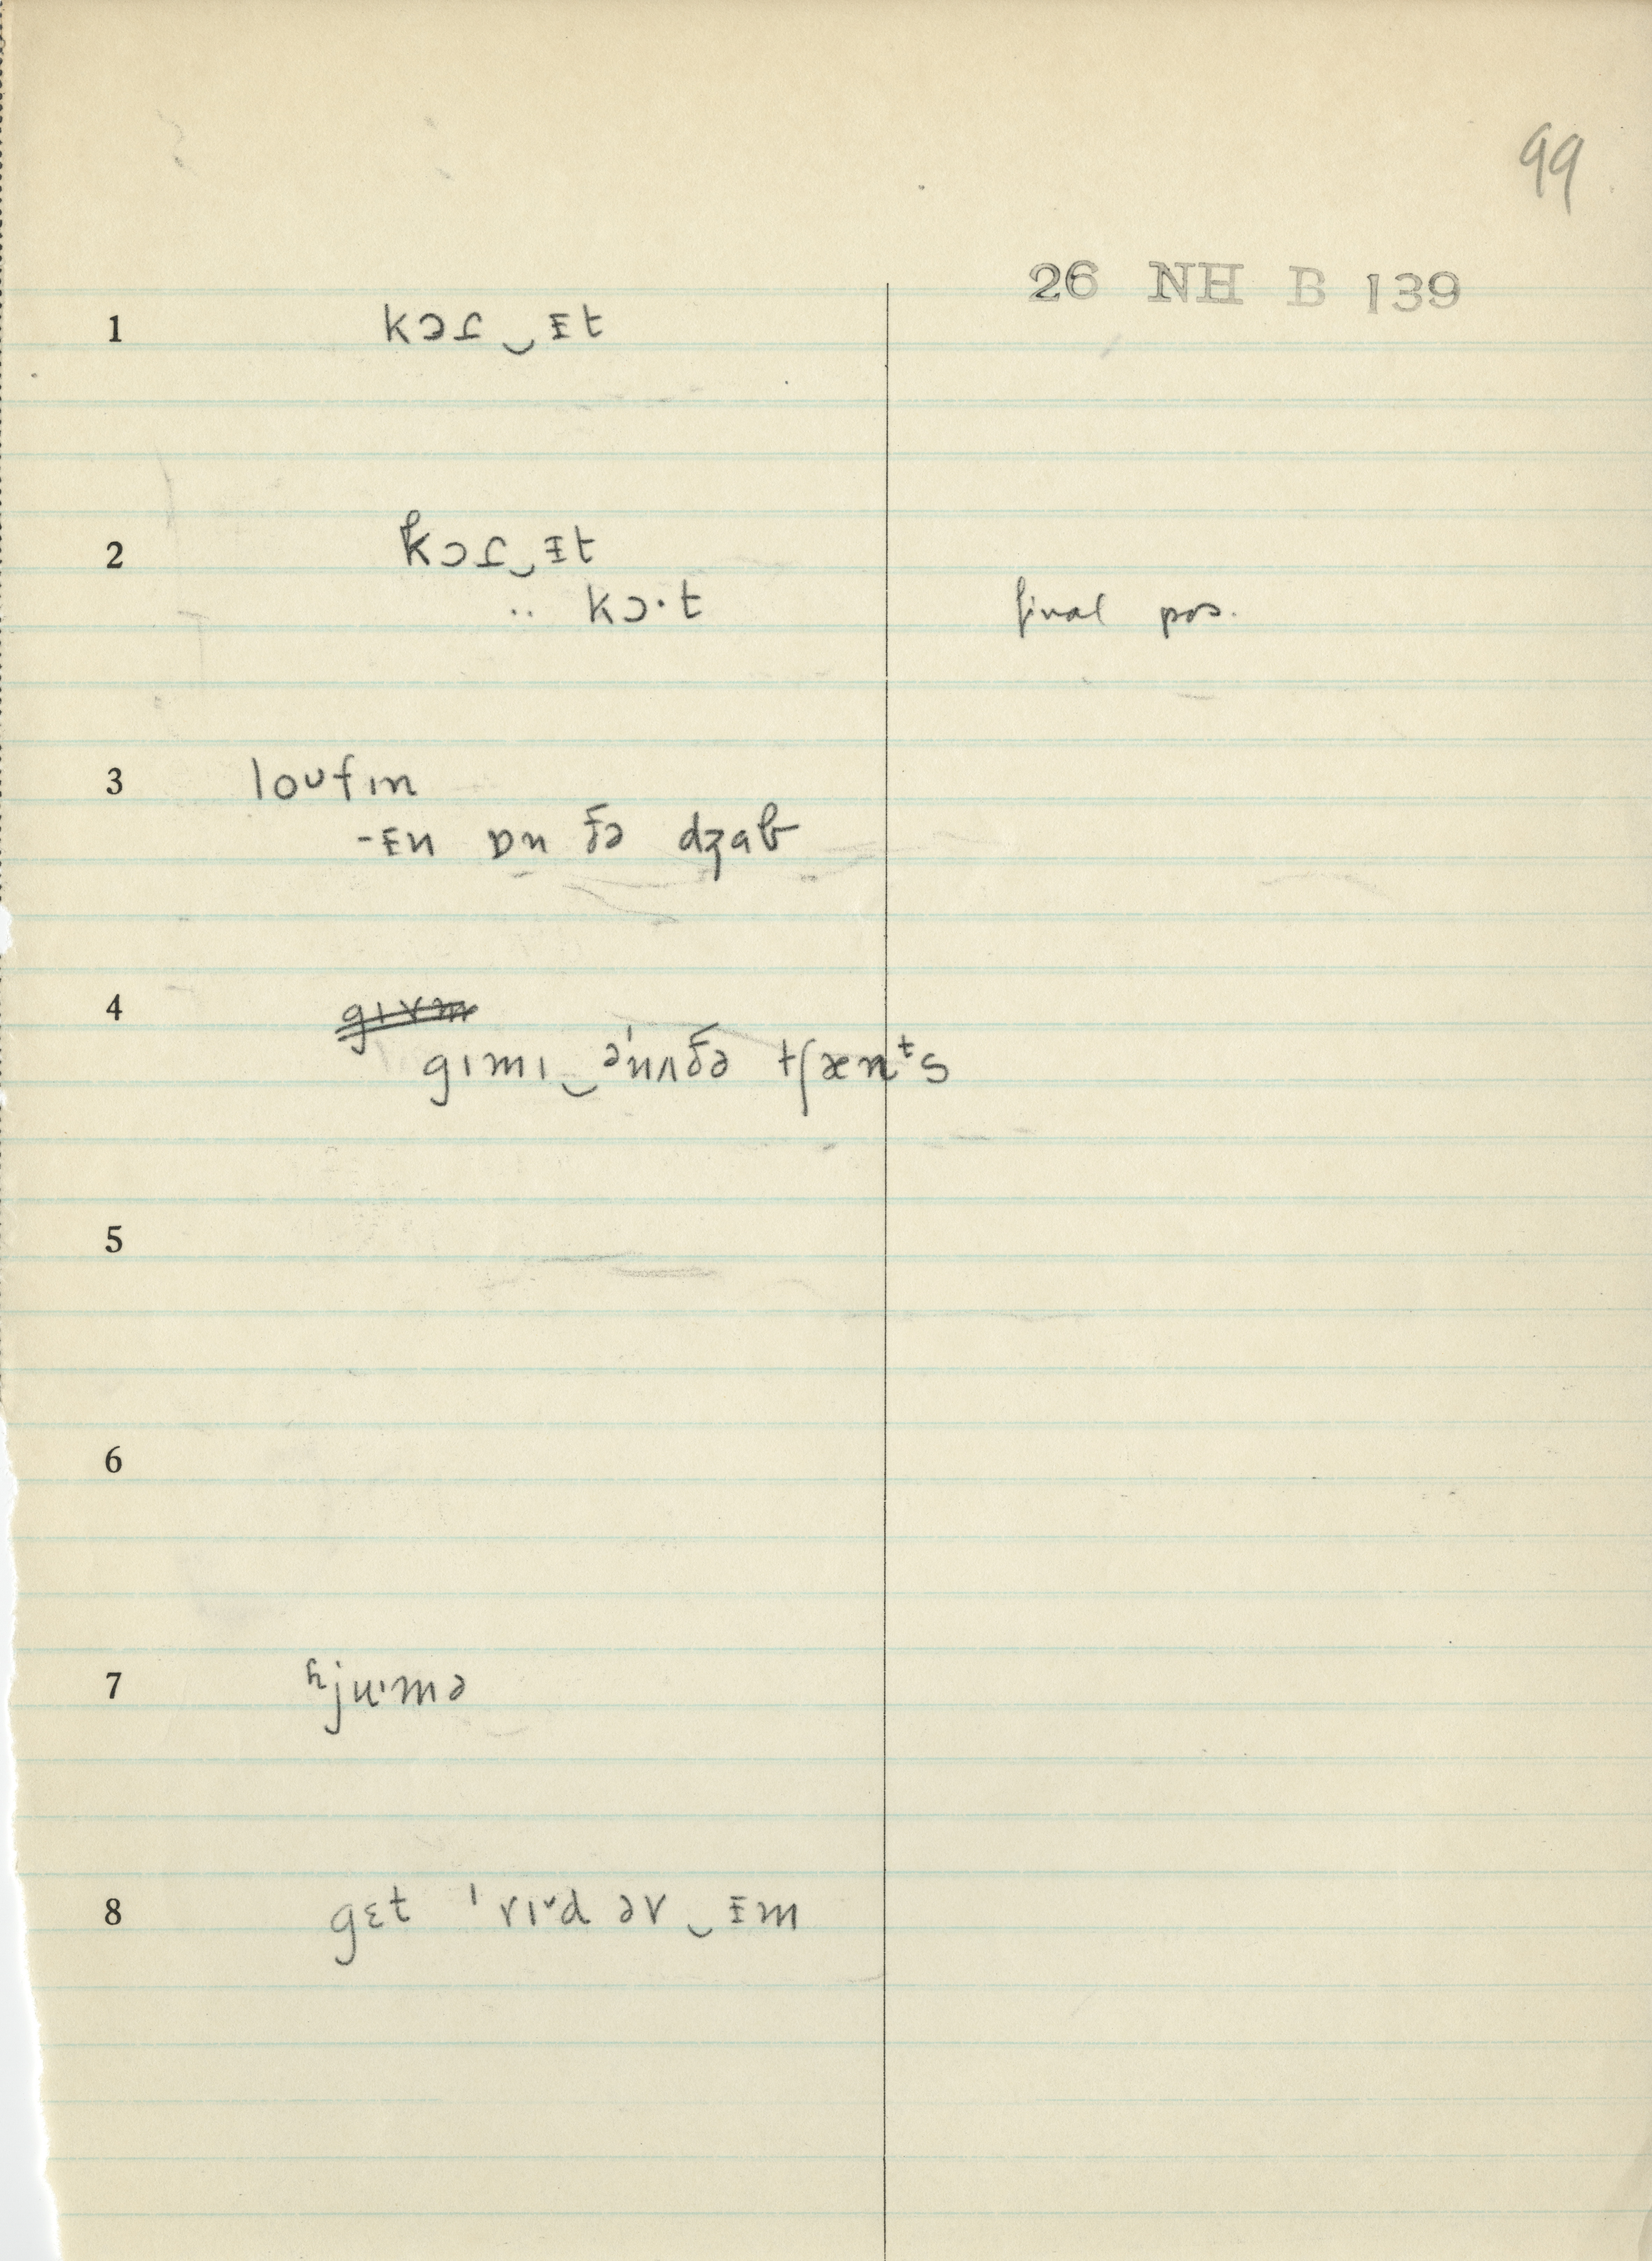 99
26 NH B 139
1 kɔɾ‿ɪt
2 kɔɾ‿ɪt
.. kɔ·t final pos.
3 loʊfɪn
-ɪn ɒn ðə dʒab
4 gɪvm
gɪmɪ‿ə'nʌðə tʃænᵗs
5
6
7 ɦju'mə
8 gɛt 'rɪˇd əv‿ɪm